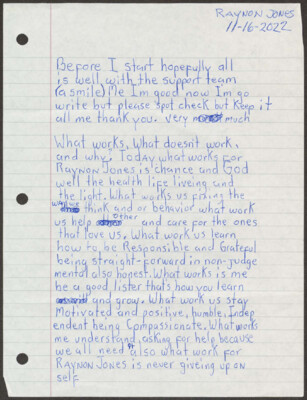 RAYNON JONES
11-16-2022
Before I start hopefully all
is well with the support team
(a smile) Me Im good now Im go
write but please spot check but keep it
all me thank you. very much
What works, What doesnt work,
and why? Today what works for
RAYNON JONES is chance and God
well the health life liveing and
the light. What works us fixing the
way we think and or behavior what work
us help other and care for the ones
that love us. What work us learn
how to be Responsible and Grateful
being straight-forward in non-judge
mental also honest. What works is me
be a good lister thats how you learn
and grow. What work us stay
Motivated and positive, humble, Indep
endent being Compassionate. What works
me understand, asking for help because
we all need it also what work for
RAYNON JONES is never giveing up on
self